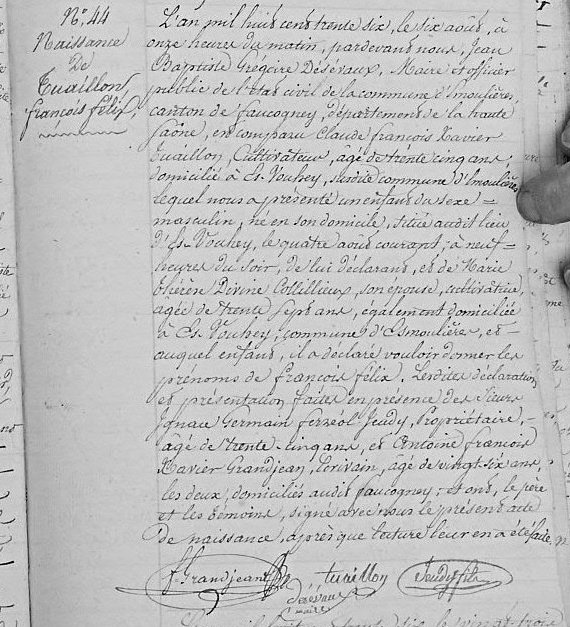 N.° 44
Naissance
De
Tuaillon,
françois félix,
L'an mil huit cent trente six, le six août, à
onze heures du matin, pardevant nous, Jean
Baptiste Grégoire Déséveaux, Maire et officier
public de l'état civil de la commune d'Esmoulières,
canton de faucogney, département de la haute
Saône, est comparu Claude françois Xavier
Tuaillon, Cultivateur, âgé de trente cinq ans,
domicilié à Es-Vouhey, susdite commune d'Esmoulières,
lequel nous a présenté un enfant du sexe =
masculin, né en son domicile, situé audit lieu
d'Es-Vouhey, le quatre août courant, à neuf =
heures du soir, de lui déclarant, et de Marie
thérèse Divine Collillieux, son épouse, cultivatrice,
agée de trente sept ans, également domiciliée
à Es-Vouhey, commune d'Esmoulières, et =
auquel enfant, il a déclaré vouloir donner les
prénoms de françois félix. Lesdites déclaration
et présentation faites en présence des Sieurs
Ignace Germain ferréol Jeudy, Propriétaire, =
âgé de trente-cinq ans, et Antoine françois
Xavier Grandjean, écrivain, âgé de vingt six ans,
les deux, domiciliés audit faucogney; et ont, le père
et les témoins, signé avec nous le présent acte
de naissance, après que lecture leur en a été faite.
f. Grandjean tuaillon Jeudy fils
Déséveaux
maire